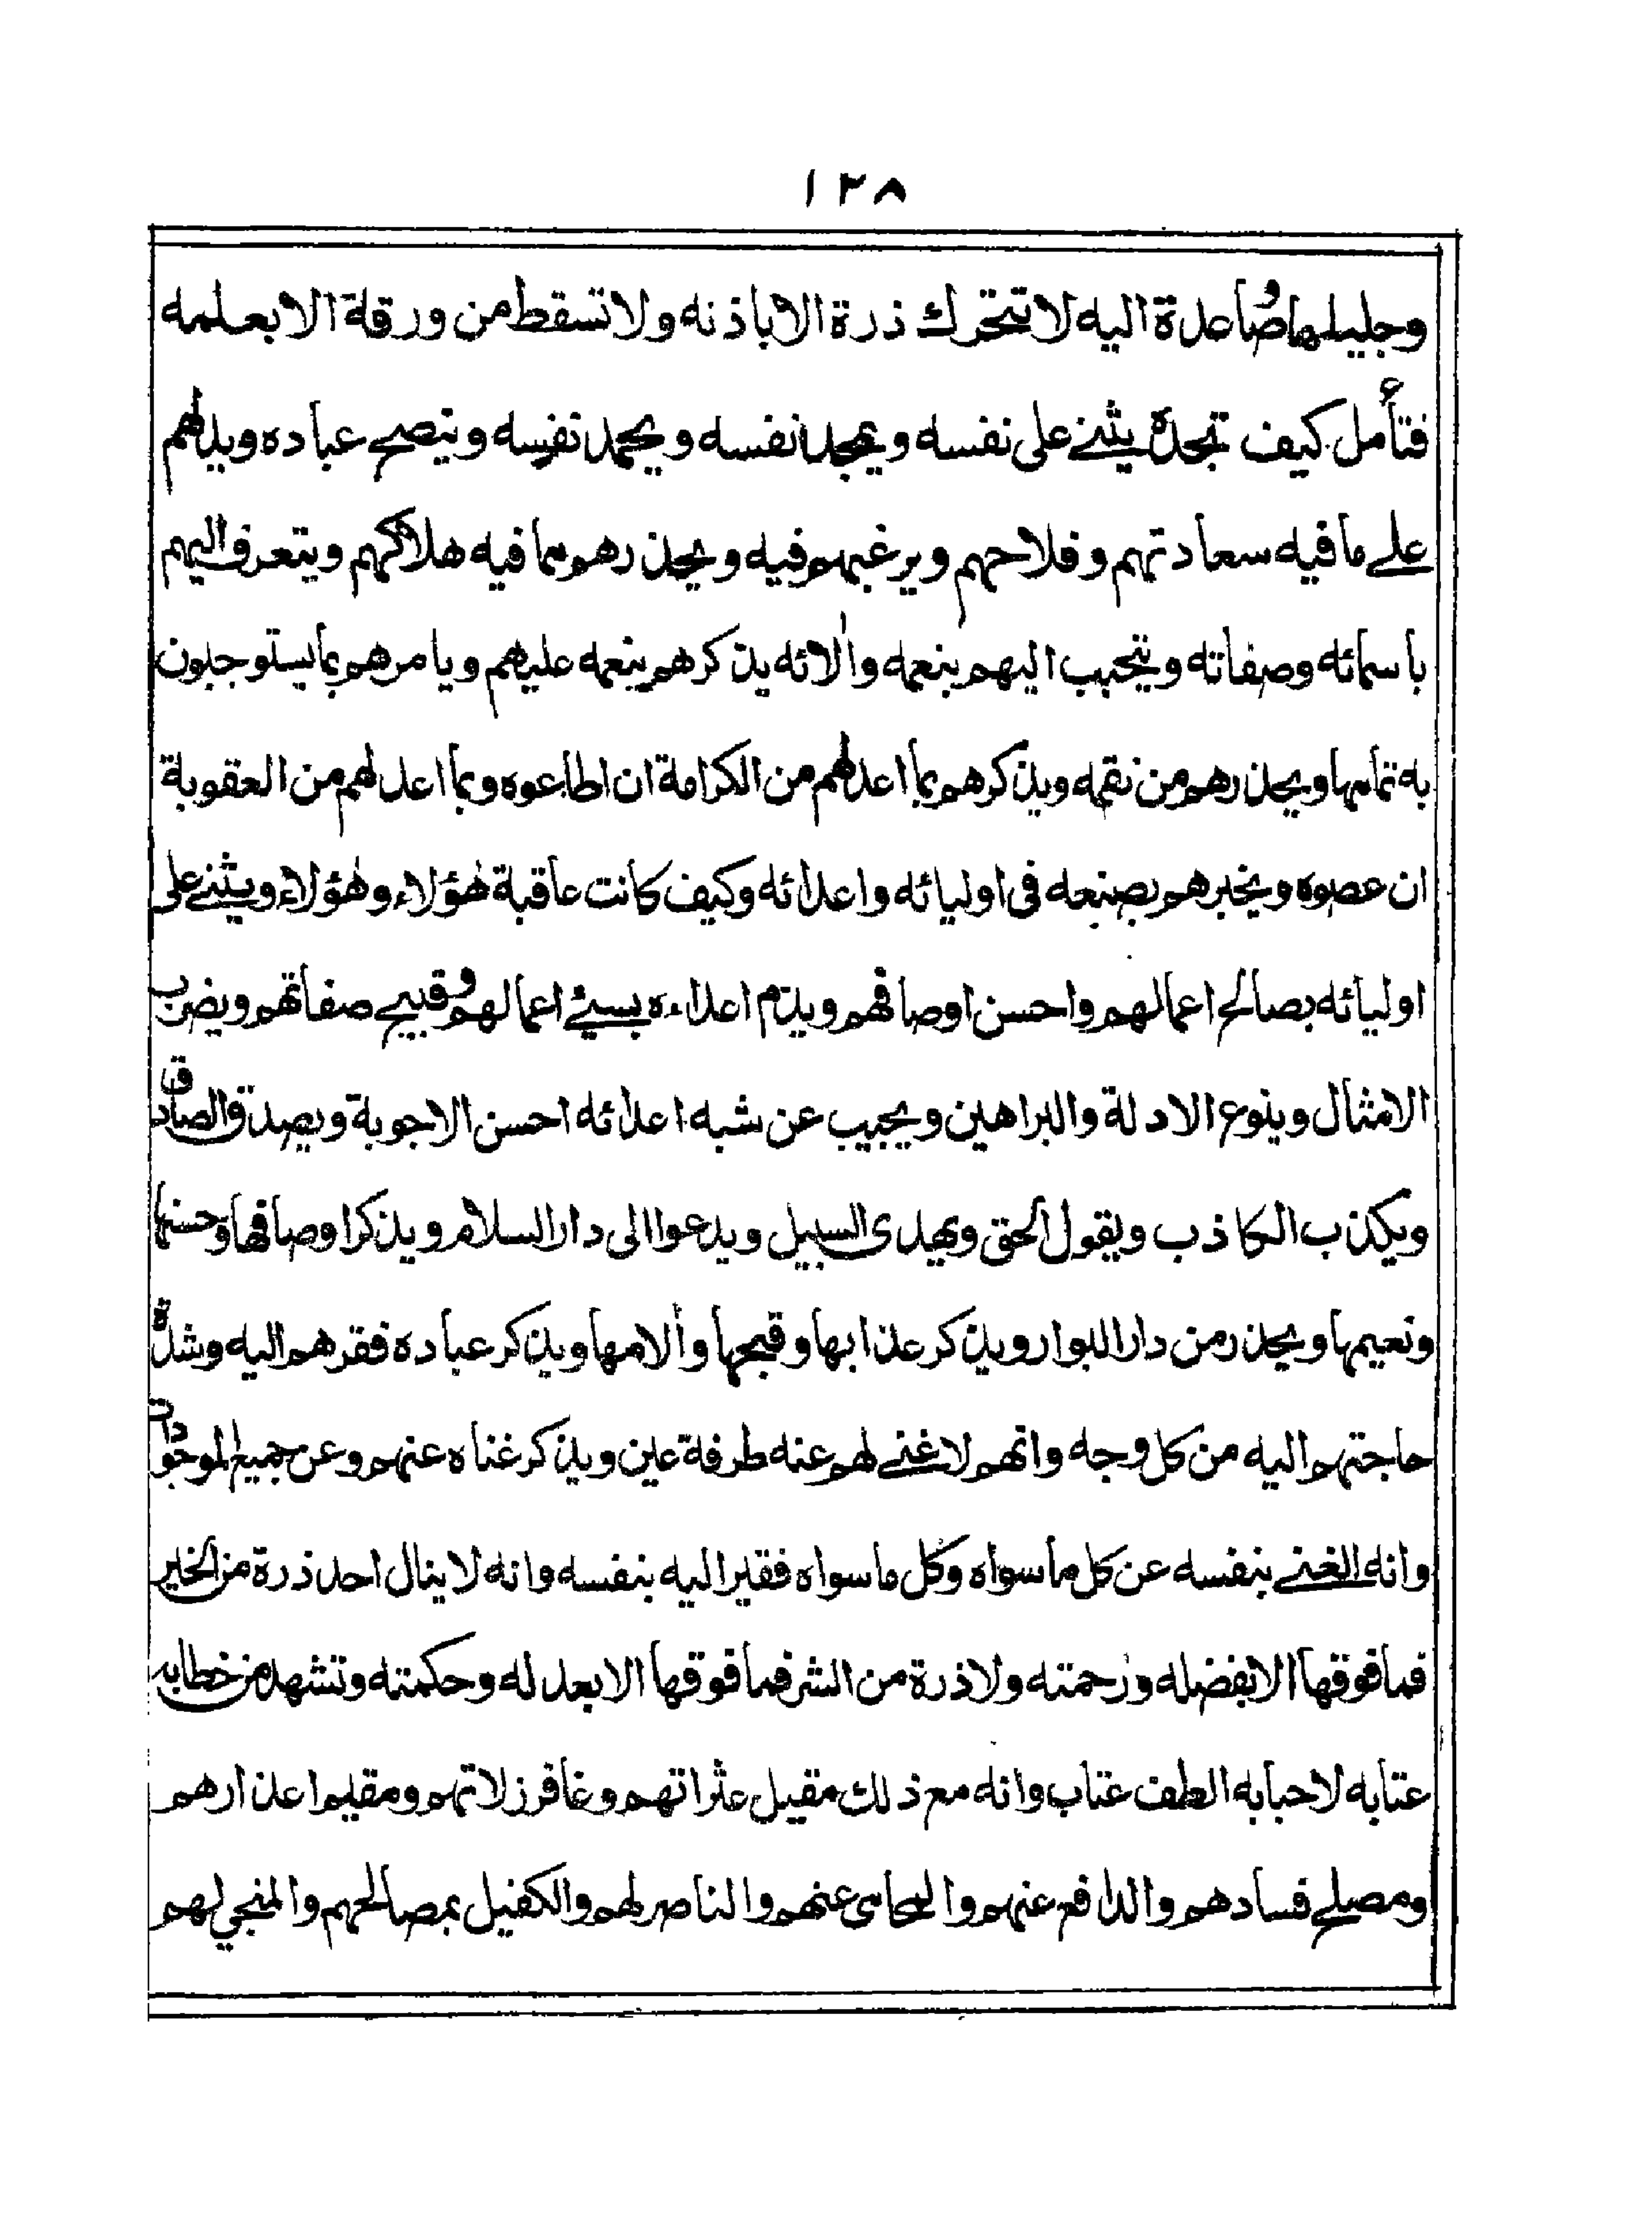 ١٢٨
وجليلها وصاعدة اليه لا تتحرك ذرة الا باذنه ولا تسقط من ورقة الا بعلمه
فتأمل كيف تجده يثني على نفسه ويمجد نفسه ويحمد نفسه وينصح عباده ويدلهم
على ما فيه سعادتهم وفلاحهم ويرغبهم فيه ويحذرهم مما فيه هلاكهم ويتعرف اليهم
باسمائه وصفاته ويتحبب اليهم بنعمه وألائه يذكرهم بنعمه عليهم ويامرهم بما يستوجبون
به تمامها ويحذرهم من نقمه ويذكرهم بما اعد لهم من الكرامة ان اطاعوه وبما اعد لهم من العقوبة
ان عصوه ويخبرهم بصنعه في اوليائه واعدائه وكيف كانت عاقبة هؤلاء وهؤلاء ويثني على
اوليائه بصالح اعمالهم واحسن اوصافهم ويذم اعداءه بسيئ اعمالهم وقبيح صفاتهم ويضرب
الامثال وينوع الادلة والبراهين ويجيب عن شبه اعدائه احسن الاجوبة ويصدق الصادق
ويكذب الكاذب ويقول الحق ويهدى السبيل ويدعوا الى دار السلام ويذكر اوصافها وحسنها
ونعيمها ويحذر من دار البوار ويذكر عذابها وقبحها وألامها ويذكر عباده فقرهم اليه وشدة
حاجتهم اليه من كل وجه وانهم لا غنى لهم عنه طرفة عين ويذكر غناه عنهم وعن جميع الموجودات
وانه الغني بنفسه عن كل ما سواه وكل ما سواه فقير اليه بنفسه وانه لا ينال احد ذرة من الخير
فما فوقها الا بفضله ورحمته ولا ذرة من الشر فما فوقها الا بعدله وحكمته وتشهد من خطابه
عتابه لاحبابه الطف عتاب وانه مع ذلك مقيل عثراتهم وغافر زلاتهم ومقيم اعذارهم
ومصلح فسادهم والدافع عنهم والمحامى عنهم والناصر لهم والكفيل بمصالحهم والمنجي لهم